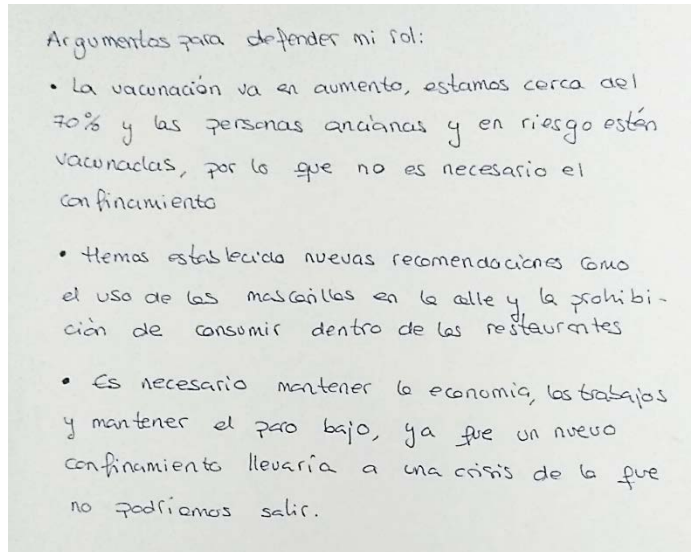 Argumentos para defender mi rol:
• La vacunación va en aumento, estamos cerca del
70% y las personas ancianas y en riesgo están
vacunadas, por lo que no es necesario el
confinamiento
• Hemos establecido nuevas recomendaciones como
el uso de las mascarillas en la calle y la prohibi-
ción de consumir dentro de los restaurantes
• Es necesario mantener la economía, los trabajos
y mantener el paro bajo, ya que un nuevo
confinamiento llevaría a una crisis de la que
no podríamos salir.